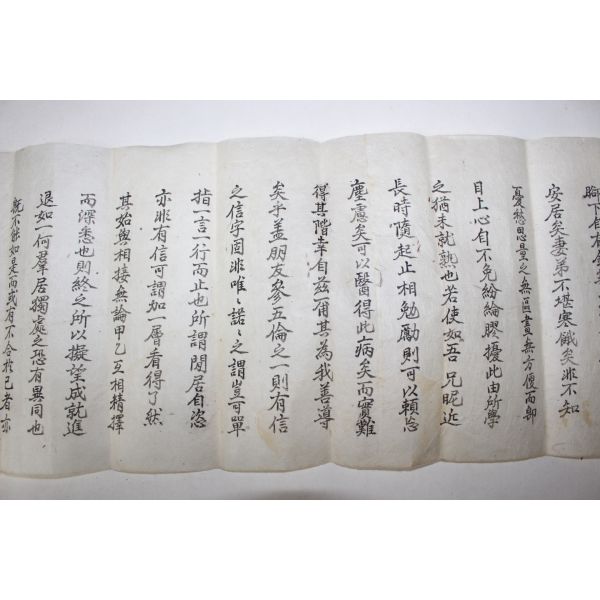 脚下自有
安居矣妻弟不堪寒餓矣非不知
憂愁思量之無區畫無方便而都
目上心自不免紛綸膠擾此由所學
之猶未就熟也若使如吾兄昵近
長時隨起止相勉勵則可以賴忘
塵慮矣可以醫得此病矣而實難
得其階幸自玆一備其為我善導
矣乎盖朋友參五倫之一則有信
之信字固非唯唯諾諾之謂豈可單
指一言一行而止也所謂閑居自恣
亦非有信可謂加一層看得了然
其始與相接無論甲乙互相精擇
而深悉也則終之所以擬望成就進
退如一何羣居獨處之恐有異同也
旣不能如是而或有不合於己者亦